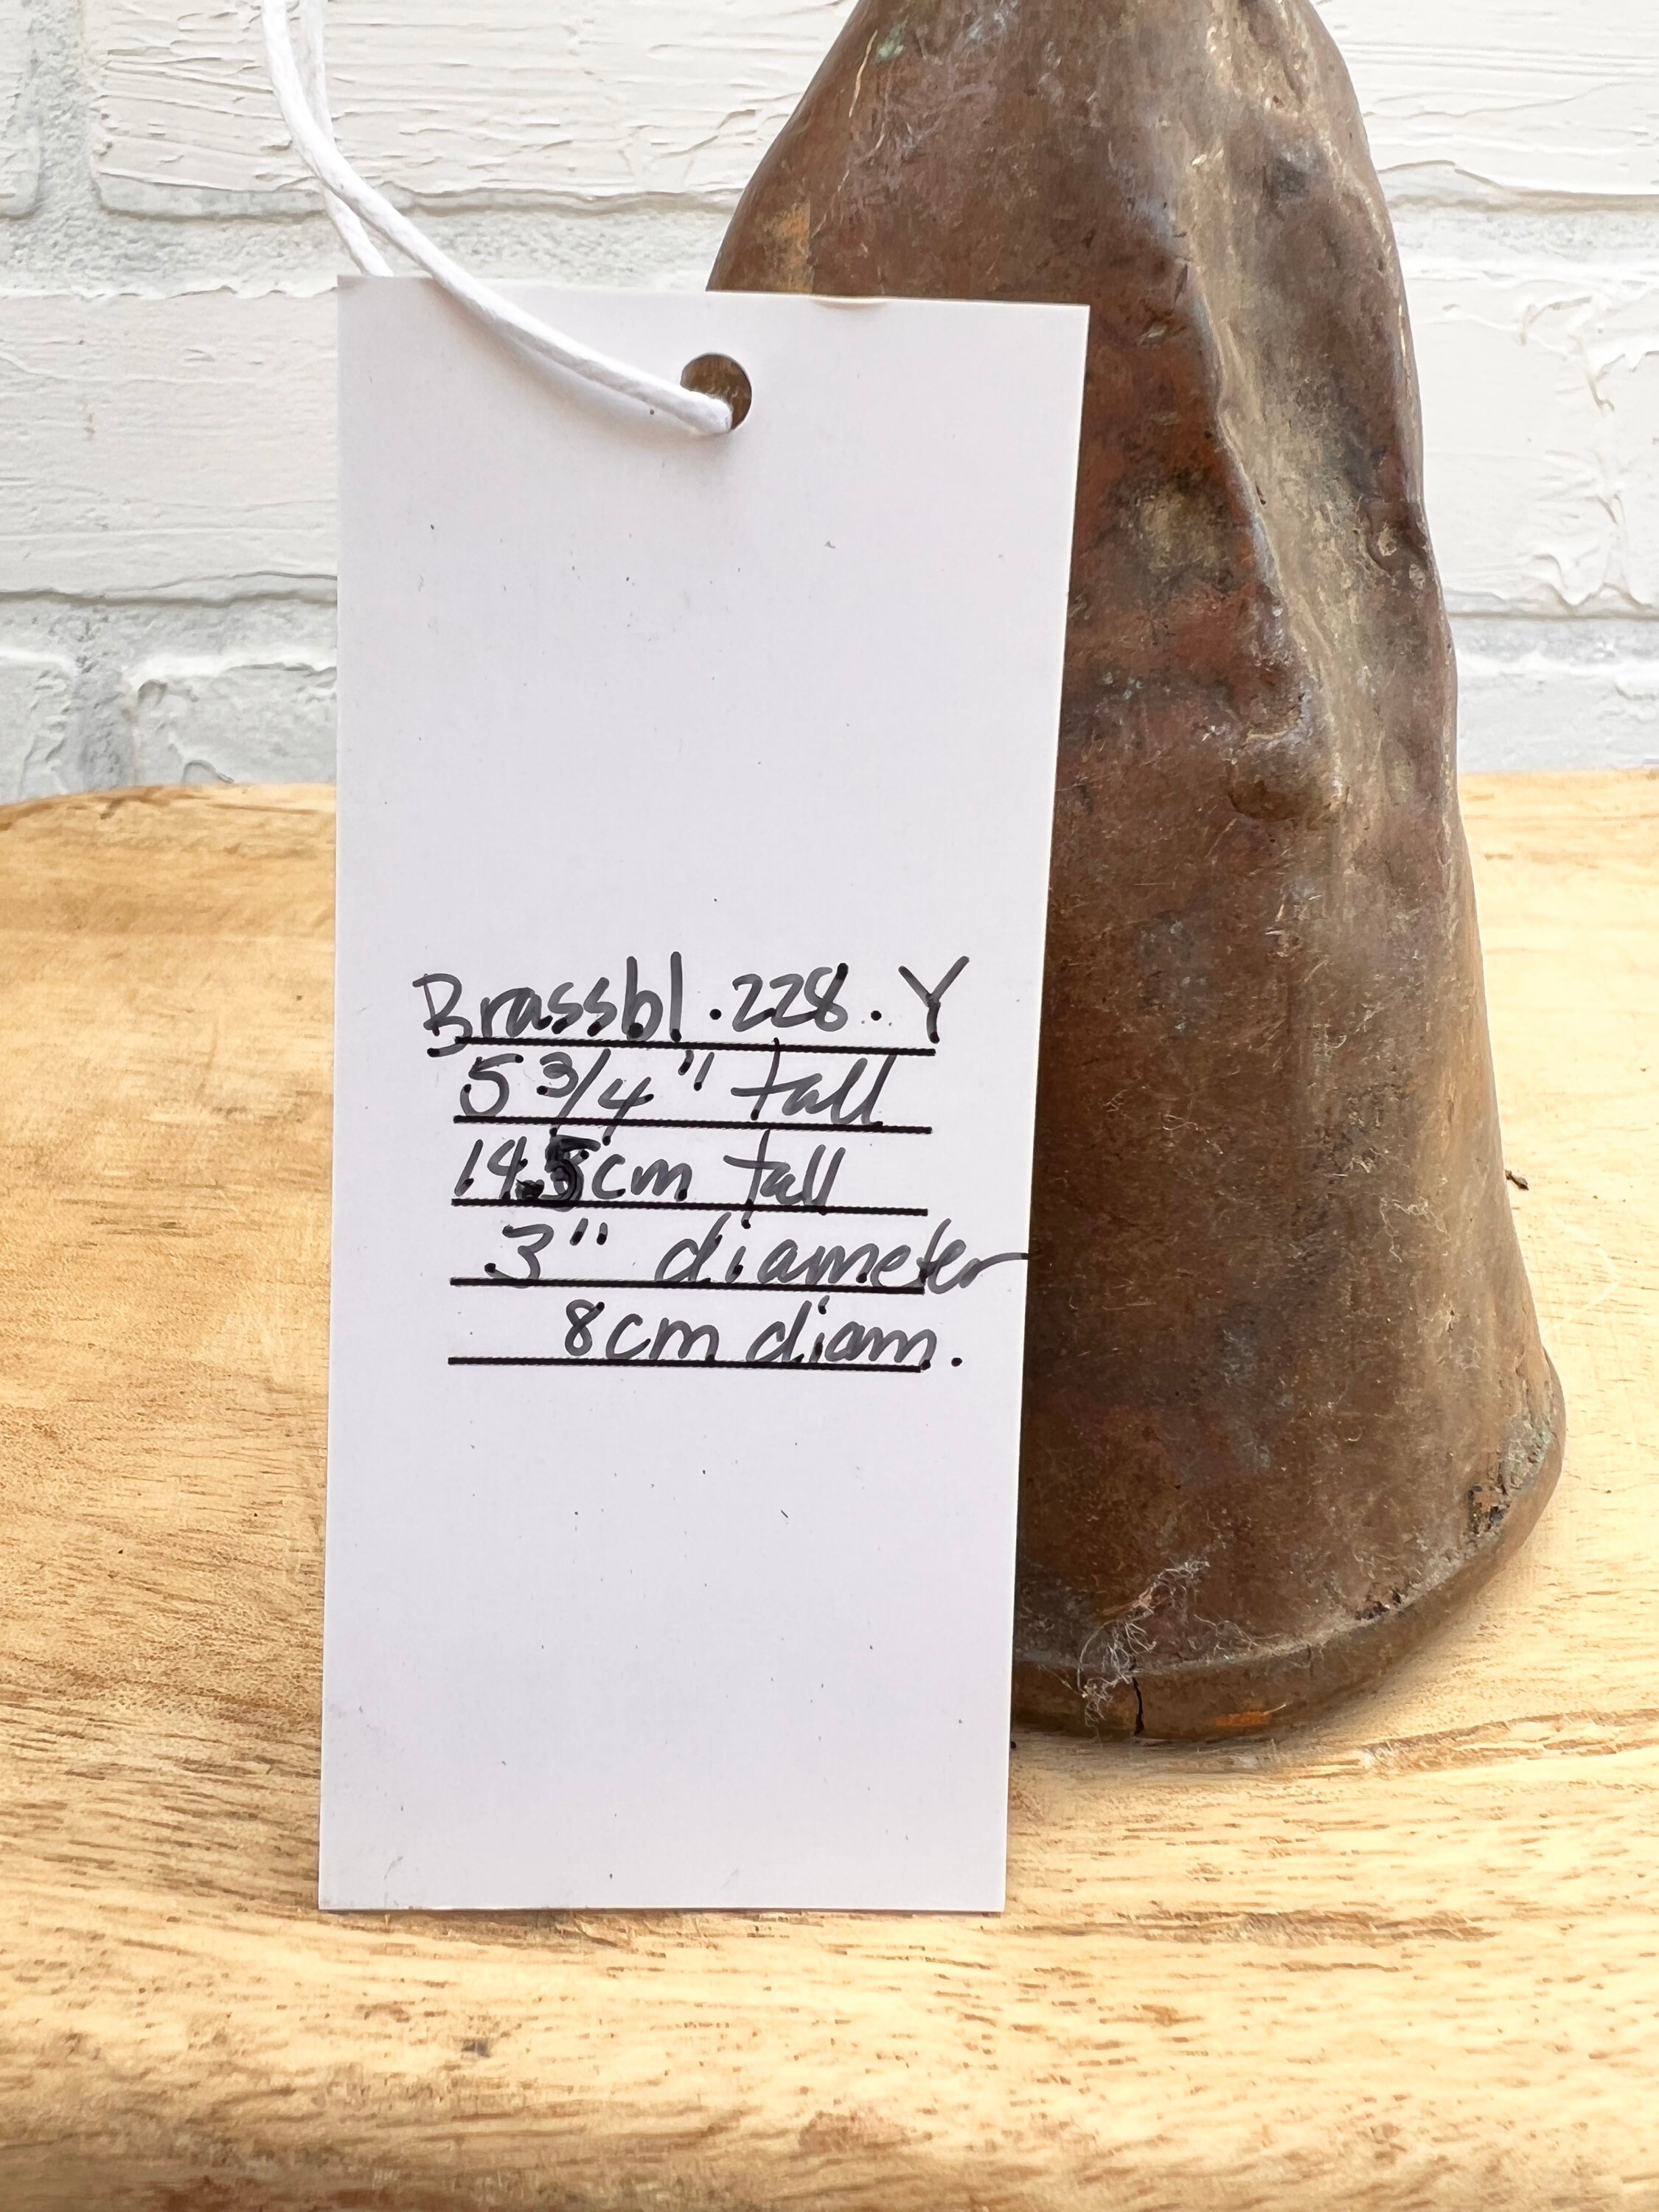 Brassbl.228.Y
5 3/4" tall
14.5cm tall
3" diameter
8cm diam.